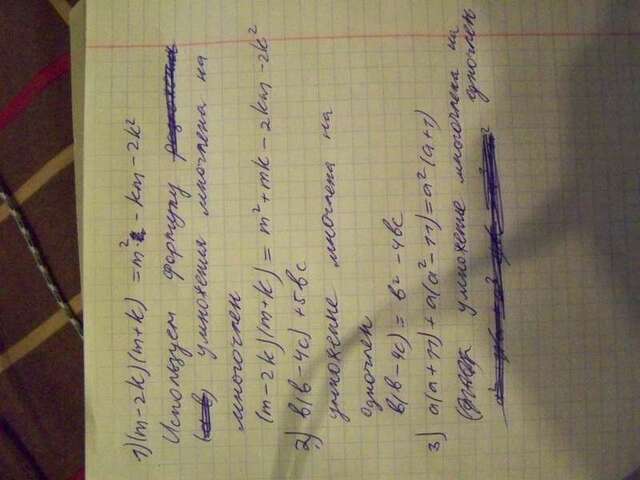 1) (m-2k)(m+k) = m² - km - 2k²
Используем формулу
умножения многочлена на
многочлен
(m-2k)(m+k) = m² + mk - 2km - 2k²
2) в(в-4с)+5вс
умножение многочлена на
одночлен
в(в-4с) = в² - 4вс
3) a(a+11)+a(a²-11)=a²(a+1)
умножение многочлена на
одночлен